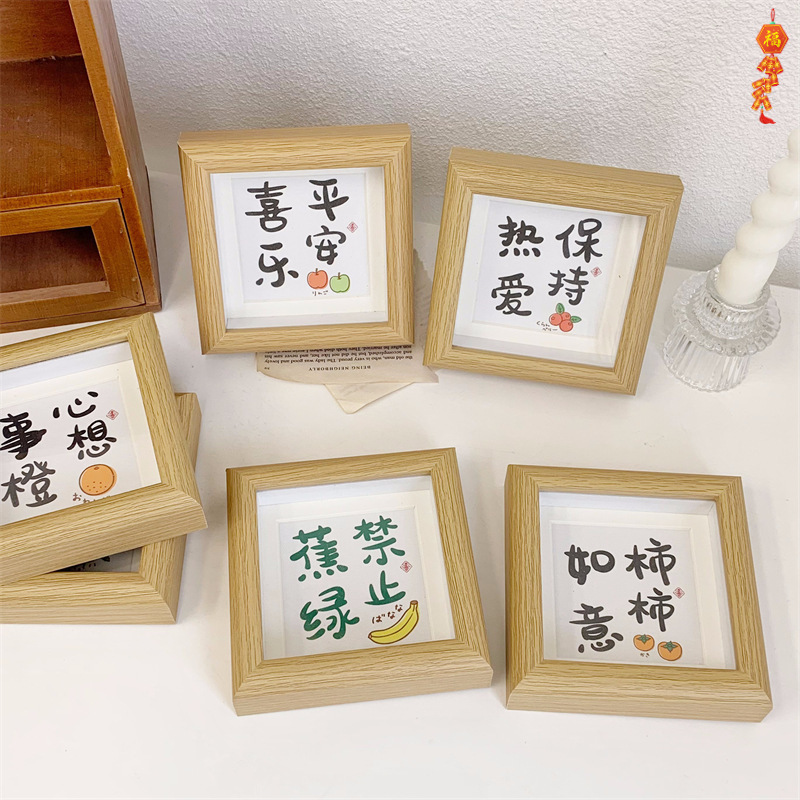 福
平安
喜乐
りんご
保持
热爱
BEING NEIGHBORLY
心想
事橙
禁止
蕉绿
ばなな
柿柿
如意
かき